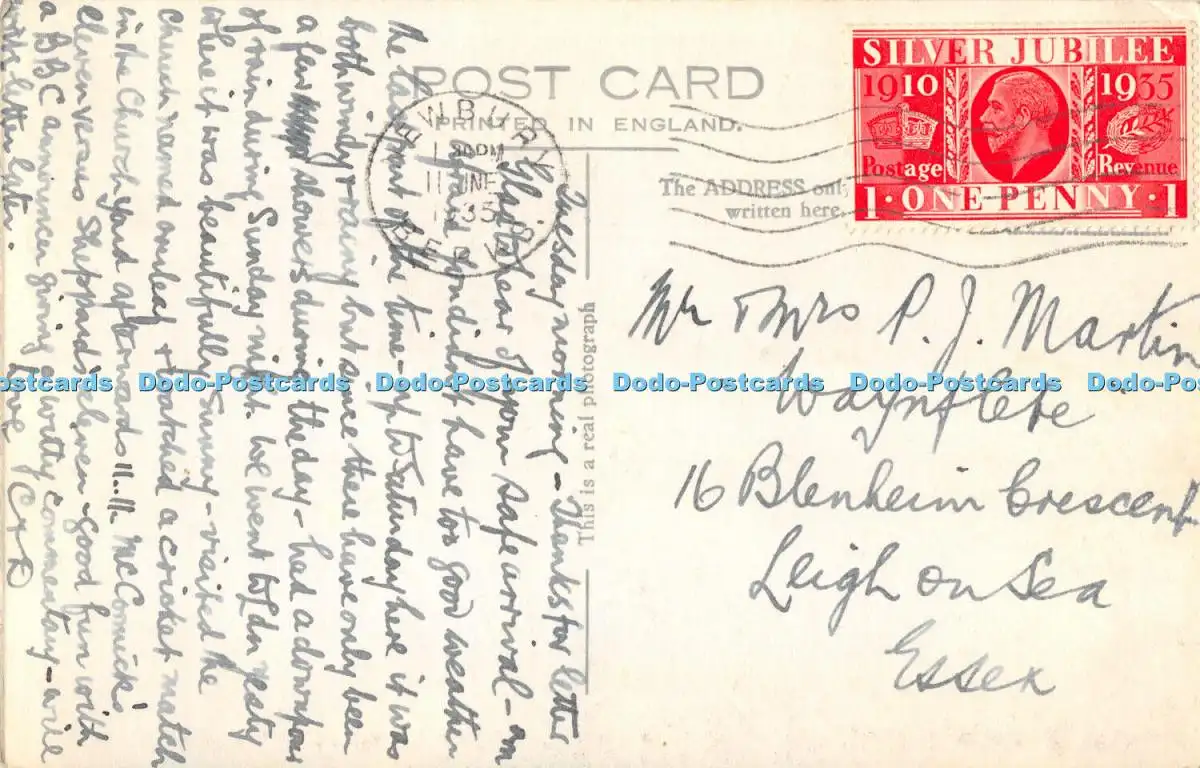 POST CARD
PRINTED IN ENGLAND.
SILVER JUBILEE
1910 1935
Postage Revenue
1 · ONE · PENNY · 1
NEWBURY
11 JUNE
1935
BERKS
The ADDRESS only
written here.
This is a real photograph
Mr & Mrs P. J. Martin
Waynflete
16 Blenheim Crescent
Leigh on Sea
Essex
Tuesday morning - Thanks for letter
Glad to hear of your safe arrival - am
afraid you didn't have too good weather
the latter part of the time - up to Saturday here it was
both windy & rainy but since there have only been
a few showers during the day - had a downpour
of rain during Sunday night. We went to Ldn yesty
where it was beautifully sunny - visited the
church named & watched a cricket match
in the Churchyard afterwards!!..!! McCormick's
eleven versus Sheppard's eleven - good fun with
a BBC announcer giving a witty commentary - will
write letter later. Love
Dodo-Postcards Dodo-Postcards Dodo-Postcards Dodo-Postcards Dodo-Postcards Dodo-Postcards